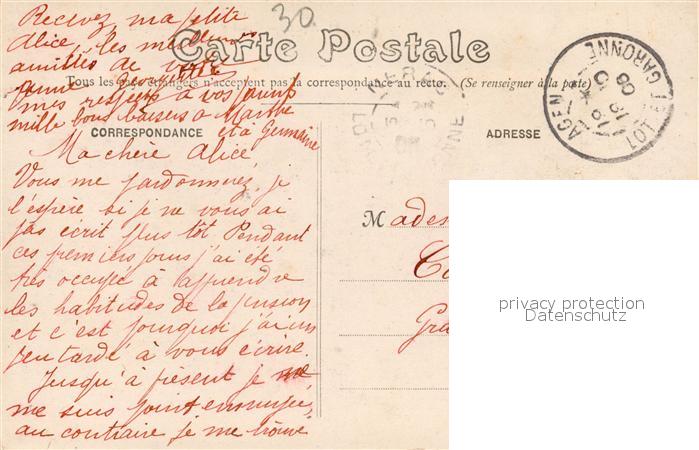 Recevez ma petite
Alice, les meilleures
amitiés de votre
amie
mes respects à vos parents
mille bons baisers à Marthe
et à Germaine
30.
Carte Postale
Tous les pays étrangers n'acceptent pas la correspondance au recto. (Se renseigner à la poste)
CORRESPONDANCE
ADRESSE
AGEN
LOT ET GARONNE
Ma chère Alice
Vous me pardonnerez, je
l'espère si je ne vous ai
pas écrit plus tôt Pendant
ces premiers jours j'ai été
très occupée à apprendre
les habitudes de la pension
et c'est pourquoi j'ai un
peu tardé à vous écrire.
Jusqu'à présent je ne
me suis point ennuyée,
au contraire je me trouve
Mades
Gra
privacy protection
Datenschutz